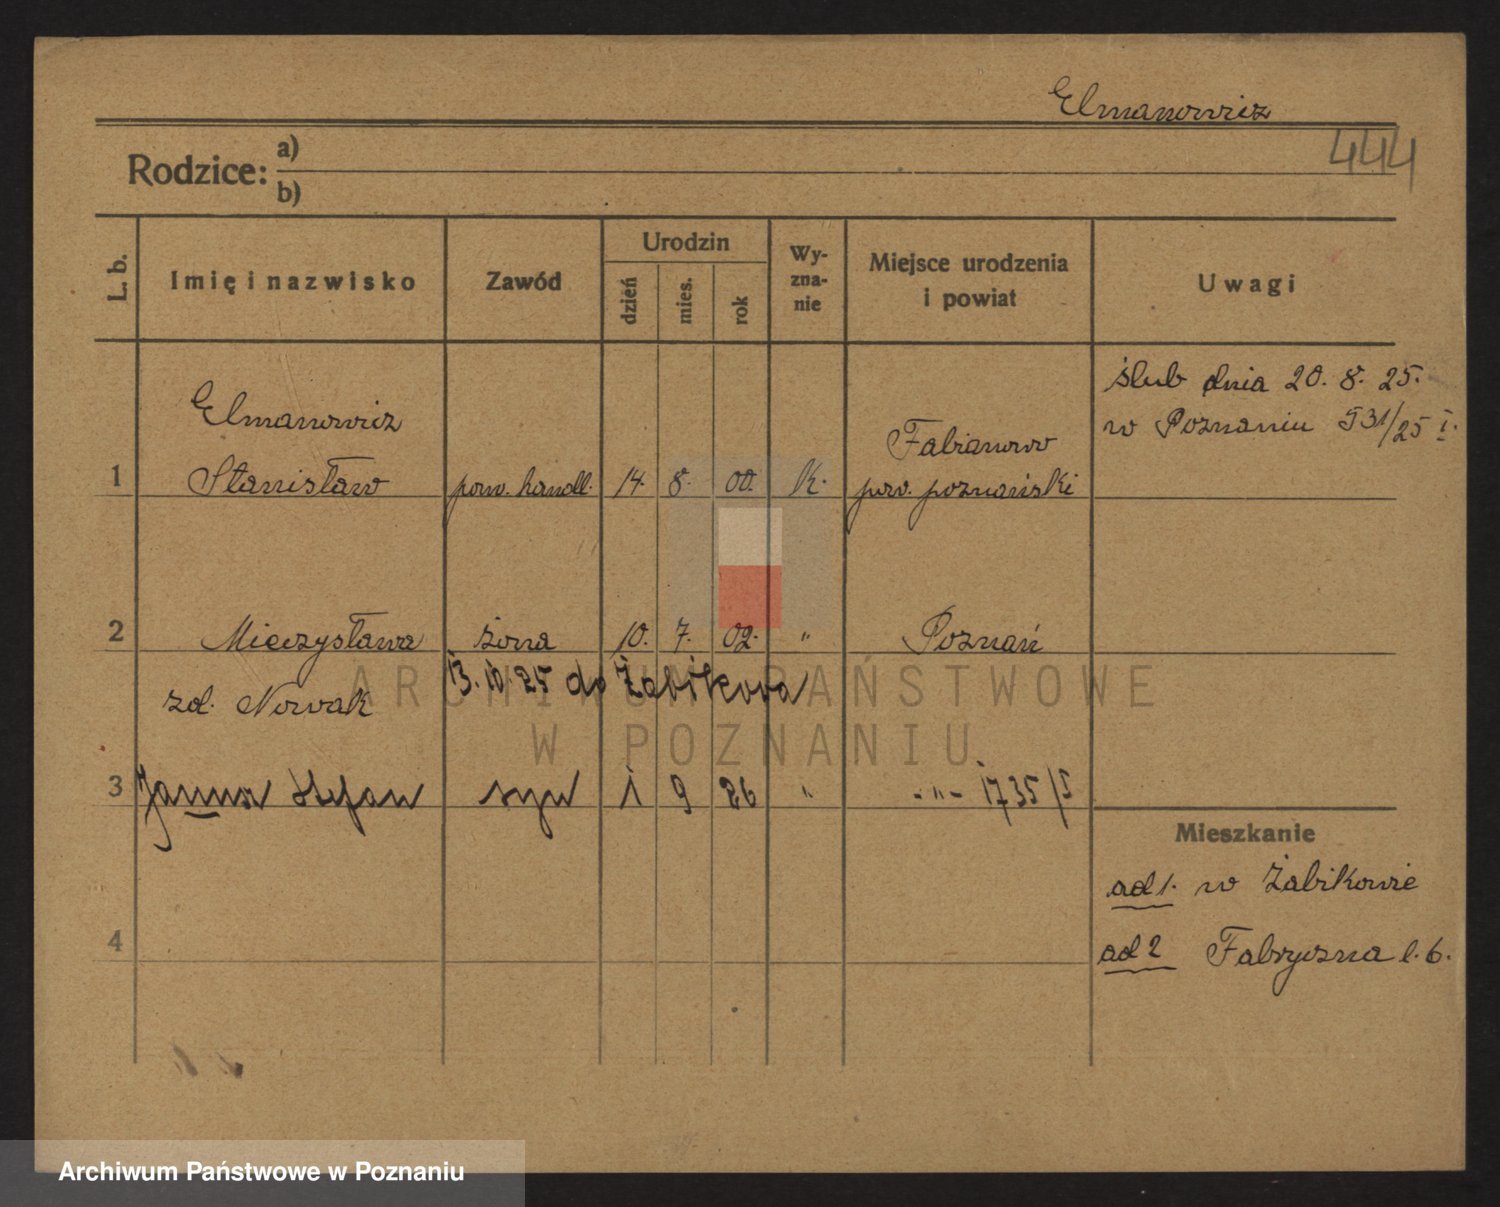 Elmanowicz
444
Rodzice: a)
b)
L. b.
Imię i nazwisko
Zawód
Urodzin
dzień
mies.
rok
Wy-
zna-
nie
Miejsce urodzenia
i powiat
Uwagi
ślub dnia 20. 8. 25.
w Poznaniu 931/25 I.
Elmanowicz
Fabianowo
1 Stanisław pow. handl. 14. 8. 00. k. pow. poznański
2 Mieczysława żona 10. 7. 02. " Poznań
13.10.25 do Żabikowa
zd. Nowak
ARCHIWUM PAŃSTWOWE
W POZNANIU
3 Stefan syn 1 9 26 " -"- 1735/I
Mieszkanie
ad 1. w Żabikowie
4
ad 2 Fabryczna l. 6.
Archiwum Państwowe w Poznaniu